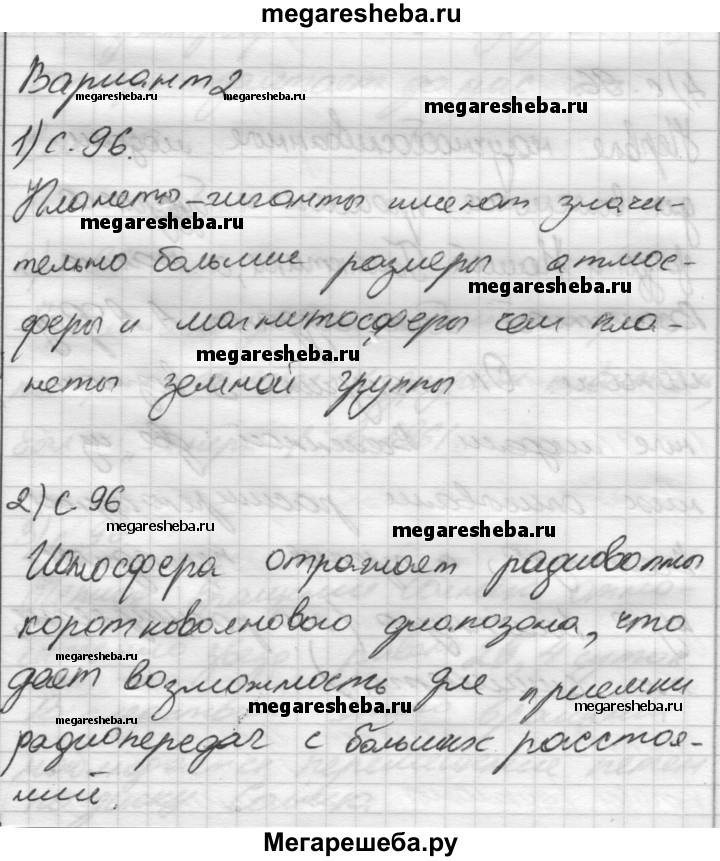 megaresheba.ru
Вариант 2
megaresheba.ru megaresheba.ru megaresheba.ru
1) с. 96.
Планеты-гиганты имеют значи-
megaresheba.ru
тельно большие размеры атмос-
megaresheba.ru
феры и магнитосферы чем пла-
megaresheba.ru
неты земной группы
2) с 96
megaresheba.ru megaresheba.ru
Ионосфера отражает радиоволны
коротковолнового диапозона, что
megaresheba.ru
дает возможность для приемки
megaresheba.ru megaresheba.ru megaresheba.ru
радиопередач с больших расстоя-
ний.
Мегарешеба.ру